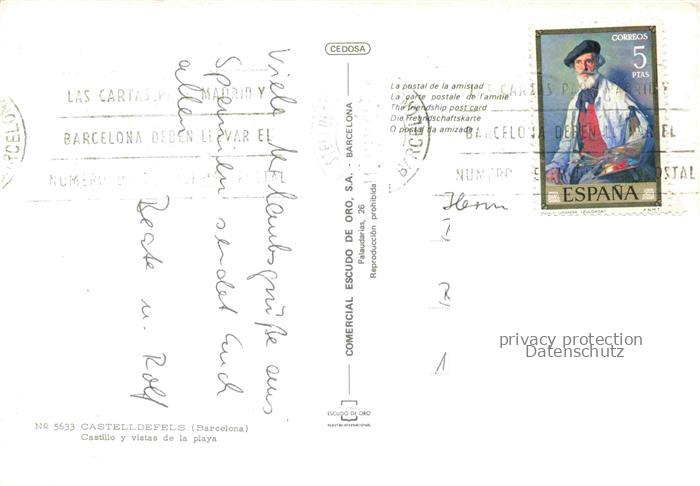 Viele Urlaubsgrüße aus
Spanien sendet Euch
allen
Beate u. Rolf
Nº 5633 CASTELLDEFELS (Barcelona)
Castillo y vistas de la playa
CEDOSA
COMERCIAL ESCUDO DE ORO, S.A. - BARCELONA
Palaudarias, 26
Reproducción prohibida
ESCUDO DE ORO
La postal de la amistad
La carte postale de l'amitié
The friendship post card
Die Freundschaftskarte
O postal da amizade
LAS CARTAS PARA MADRID Y
BARCELONA DEBEN LLEVAR EL
NUMERO DISTRITO POSTAL
BARCELONA
CORREOS
5
PTAS
ESPAÑA
F.N.M.T.
Herrn
privacy protection
Datenschutz